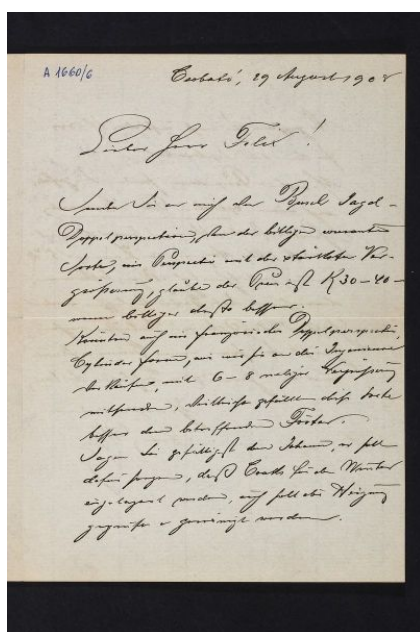 A 1660/6
Csorbató, 29 August 1908
Lieber Herr Felix!
Senden Sie an mich der Jagd-
Doppelperspective, der billigen
Sorte, ein Perspectiv mit der stärksten Ver-
größerung, glaube der Preis ist K 30-40-
wenn billiger desto besser.
Könnten auch ein französisches Doppelperspectiv,
Cylinder Form, wie wir sie an die Ingenieure
verkaufen, mit 6-8 maliger Vergrößerung
mitsenden, vielleicht gefällt diese Sorte
besser dem betreffenden Förster.
Sagen Sie gefälligst dem Johann, er soll
dafür sorgen, daß Coaks für den Winter
eingelagert werden, auch soll die Heizung
gereinigt werden.